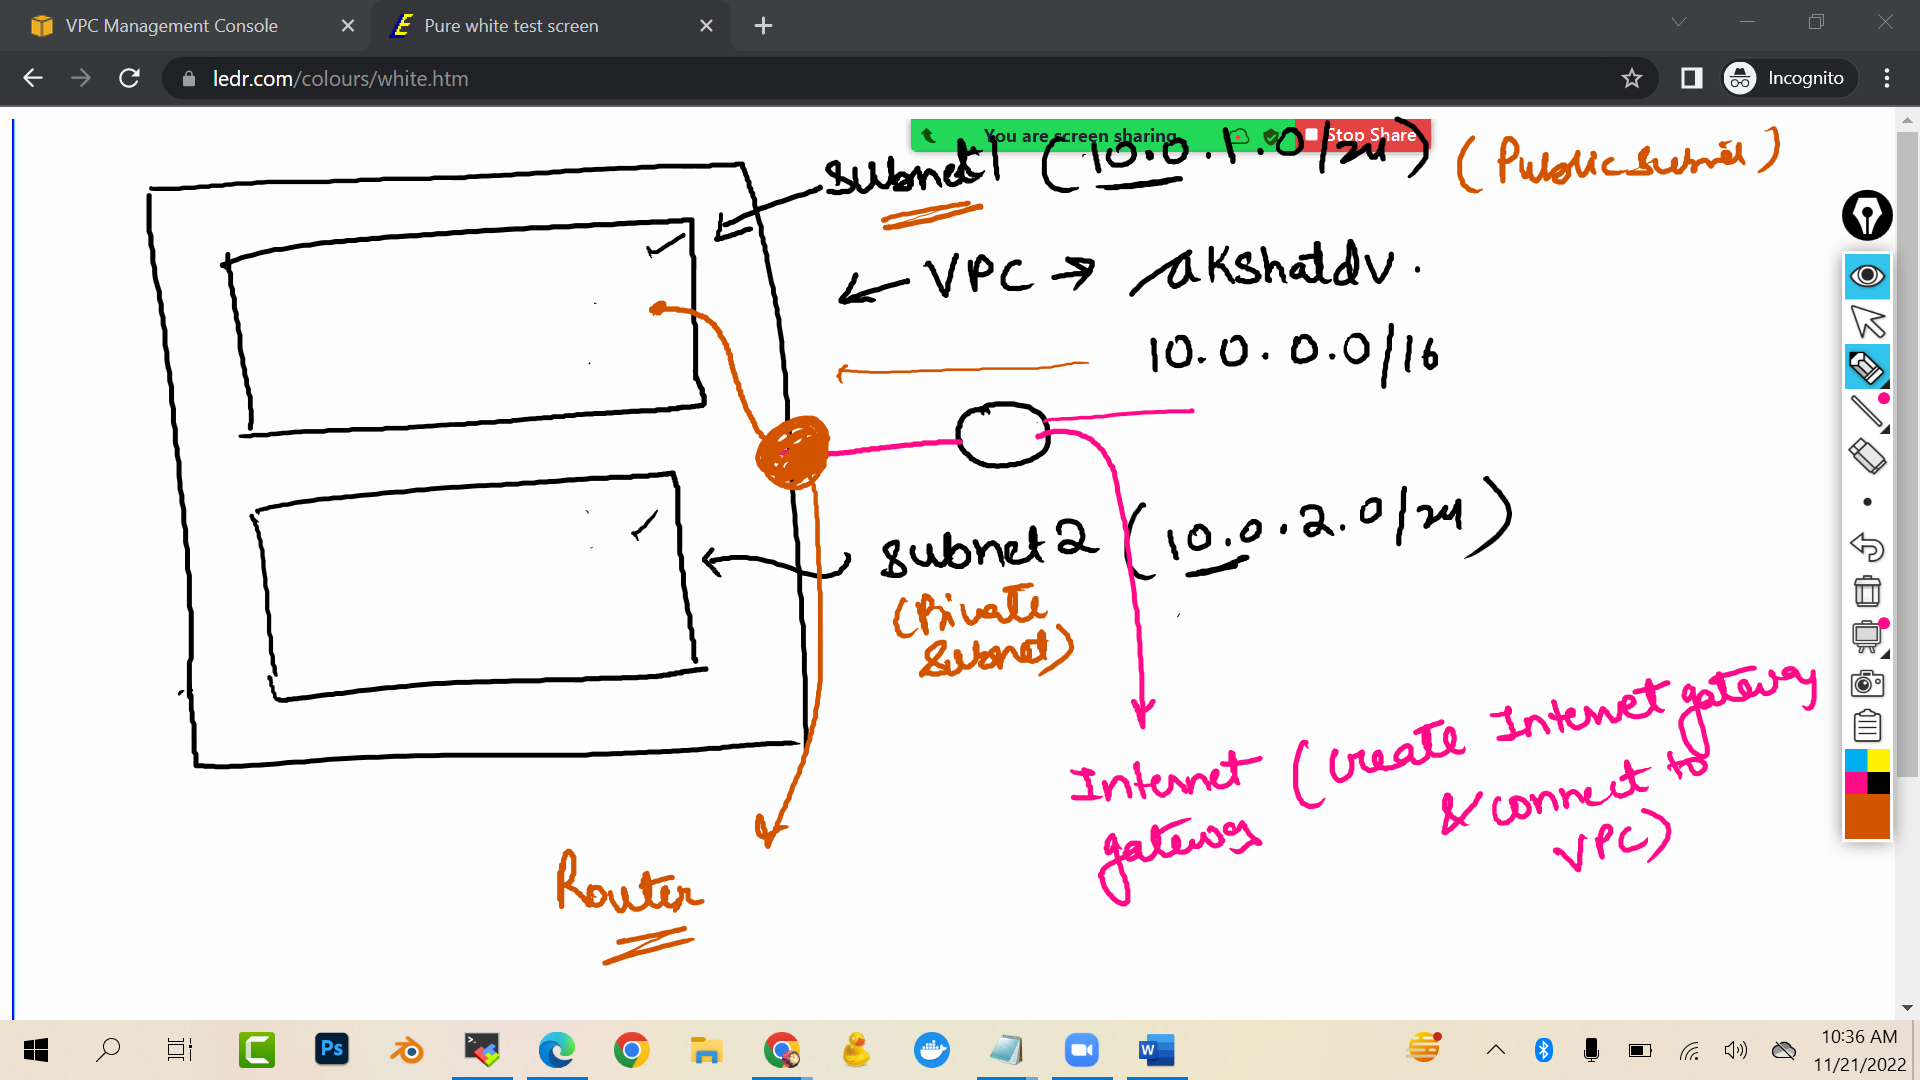 VPC Management Console
Pure white test screen
ledr.com/colours/white.htm
Incognito
You are screen sharing
Stop Share
Subnet1 (10.0.1.0/24) (Public Subnet)
VPC → akshatdv.
10.0.0.0/16
Subnet2 (10.0.2.0/24)
(Private
Subnet)
Internet (create Internet gateway
gateway & connect to
VPC)
Router
Ps
W
10:36 AM
11/21/2022